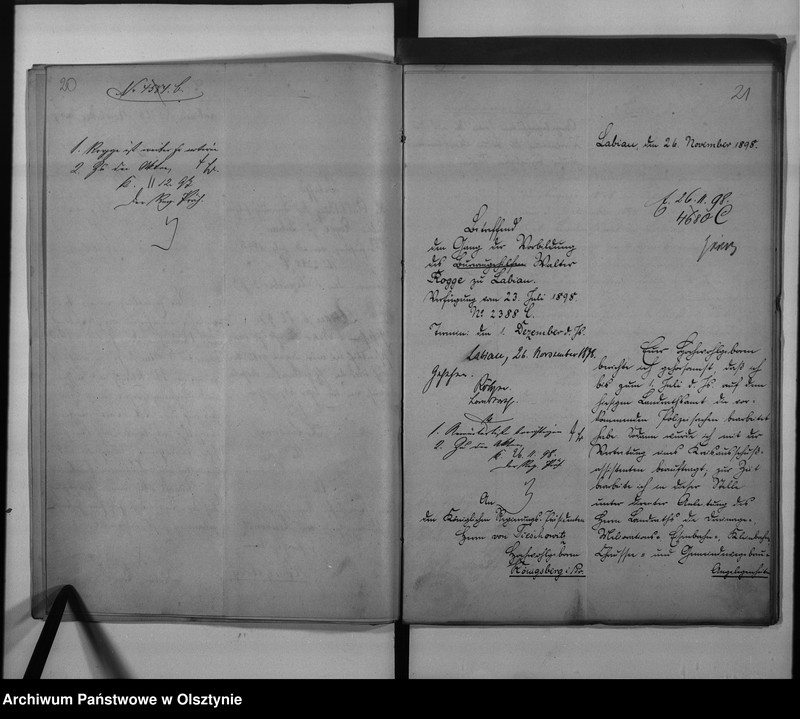 20
No 4384. C.
1. Rogge ist weiter zu
2. Zu den Akten
K. 11/12. 98
Der Reg. Präs.
21
Labiau, den 26. November 1898.
E. 26. 11. 98.
4680 C
Betreffend
den Gang der Vorbildung
des Walter
Rogge zu Labiau.
Verfügung vom 23. Juli 1898.
No 2388 C.
Termin: den 1. Dezember d. Js.
Labiau, 26. November 1898.
Gesehen.
Landrath.
1.
2. Zu den Akten
K. 26. 11. 98.
Der Reg. Präs.
An
den Königlichen Regierungs-Präsidenten
Herrn von Tieschowitz
Hochwohlgeboren
Königsberg i/Pr.
Euer Hochwohlgeboren
berichte ich gehorsamst, daß ich
bis zum 1. Juli d. Js. auf dem
hiesigen Landrathsamt die vor-
kommenden Polizeisachen bearbeitet
habe. Dann wurde ich mit der
Vertretung eines Kreisausschuß-
assistenten beauftragt, zur Zeit
bearbeite ich in dieser Stelle
unter direkter Anleitung des
Herrn Landraths die Drainage-
Meliorations-, Eisenbahn-, Kleinbahn-
Chaussee- und Gemeindewegebau-
Angelegenheiten
Archiwum Państwowe w Olsztynie